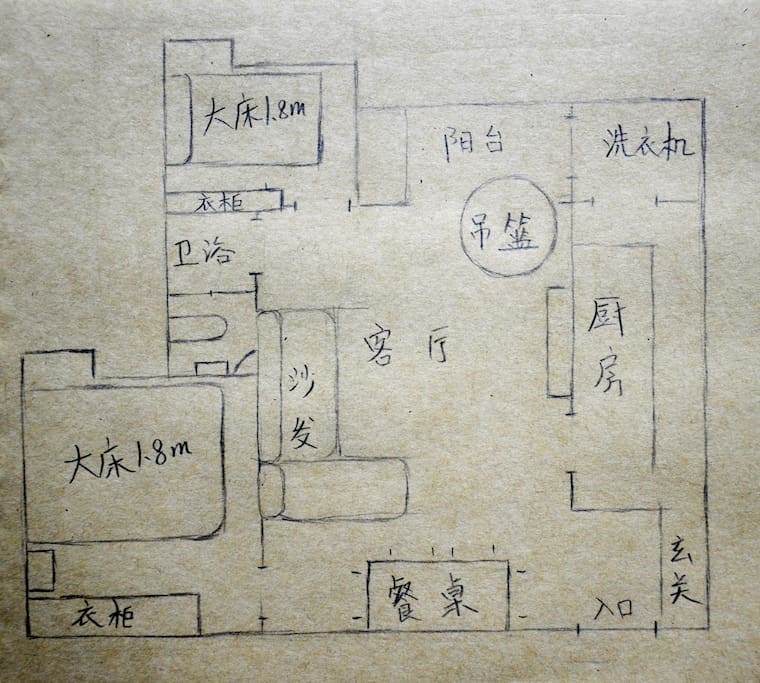 大床1.8m
阳台
洗衣机
衣柜
吊篮
卫浴
厨房
客厅
沙发
大床1.8m
玄关
餐桌
入口
衣柜